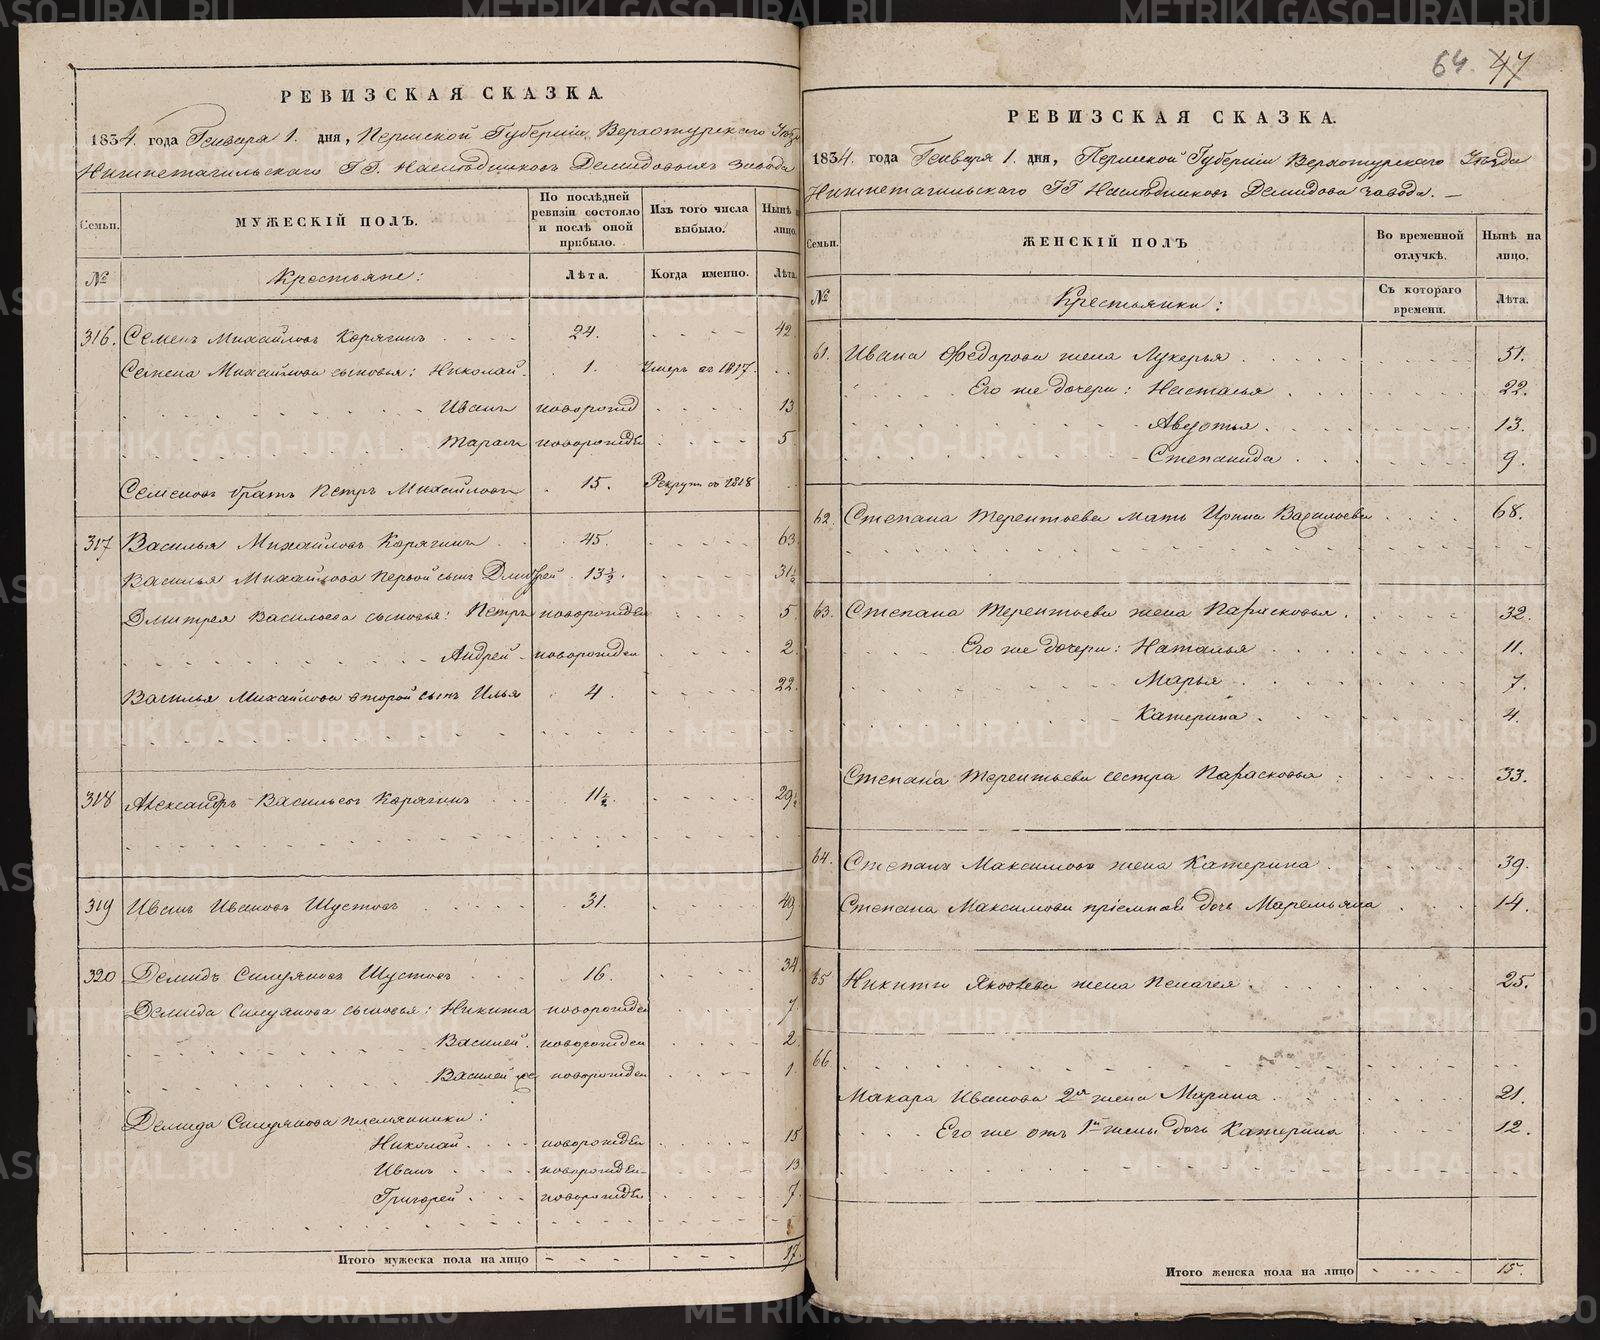 РЕВИЗСКАЯ СКАЗКА.
1834. года Генваря 1. дня, Пермской Губерніи Верхотурскаго Уѣзда
Нижнетагильскаго ГГ. Наслѣдниковъ Демидовыхъ завода
Семьи. МУЖЕСКІЙ ПОЛЪ. По послѣдней ревизіи состояло и послѣ оной прибыло. Изъ того числа выбыло. Нынѣ лицо.
№ Крестьяне: Лѣта. Когда именно. Лѣта.
316. Семенъ Михайловъ Корягинъ 24. 42
Семена Михайлова сыновья: Николай. 1. Умеръ въ 1817.
Иванъ новорожд 13
Тарасъ новорожден 5
Семеновъ братъ Петръ Михайловъ 15. Рекрутъ съ 1818
317 Василья Михайловъ Корягинъ 45. 63
Василья Михайлова первой сынъ Дмитрей 13½. 31½
Дмитрея Васильева сыновья: Петръ новорожден 5
Андрей новорожден 2
Василья Михайлова второй сынъ Илья 4. 22
318 Александръ Васильевъ Корягинъ 11½. 29½
319 Иванъ Ивановъ Шустовъ 31. 49
320 Демидъ Силуяновъ Шустовъ 16. 34
Демида Силуянова сыновья: Никита новорожден 7
Василей. новорожден 2
Василей же новорожден 1
Демида Силуянова племянники:
Николай новорожден 15
Иванъ новорожден 13
Григорей новорожден 7
Итого мужеска пола на лицо 17.
64. 47
РЕВИЗСКАЯ СКАЗКА.
1834. года Генваря 1. дня, Пермской Губерніи Верхотурскаго Уѣзда
Нижнетагильскаго ГГ Наслѣдниковъ Демидова завода.
Семьи. ЖЕНСКІЙ ПОЛЪ Во временной отлучкѣ. Нынѣ на лицо.
№ Крестьянки: Съ котораго времени. Лѣта.
61. Ивана Федорова жена Лукерья 51.
Его же дочери: Настасья 22.
Авдотья 13.
Степанида 9.
62. Степана Терентьева мать Ирина Васильева 68.
63. Степана Терентьева жена Парасковья 32.
Его же дочери: Наталья 11.
Марья 7.
Катерина 4.
Степана Терентьева сестра Парасковья 33.
64. Степанъ Максимовъ жена Катерина 39.
Степана Максимова пріемная дочь Маремьяна 14.
65 Никиты Яковлева жена Пелагея 25.
66
Макара Иванова 2я жена Марина 21.
Его же отъ 1й жены дочь Катерина 12.
Итого женска пола на лицо 15.